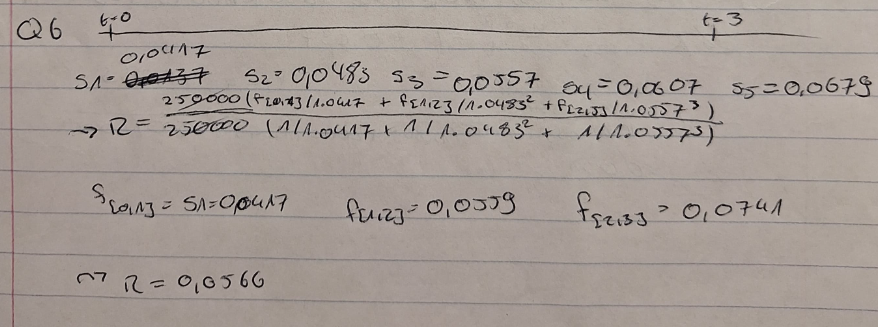 Q6 t=0 t=3
0,0417
S1= 0,0137 S2=0,0483 S3=0,0557 S4=0,0607 S5=0,0679
250000 (f[0,1]/1.0417 + f[1,2]/1.0483² + f[2,3]/1.0557³)
→ R = 250000 (1/1.0417 + 1/1.0483² + 1/1.0557³)
f[0,1] = S1=0,0417 f[1,2]=0,0559 f[2,3] = 0,0741
⇝ R = 0,0566